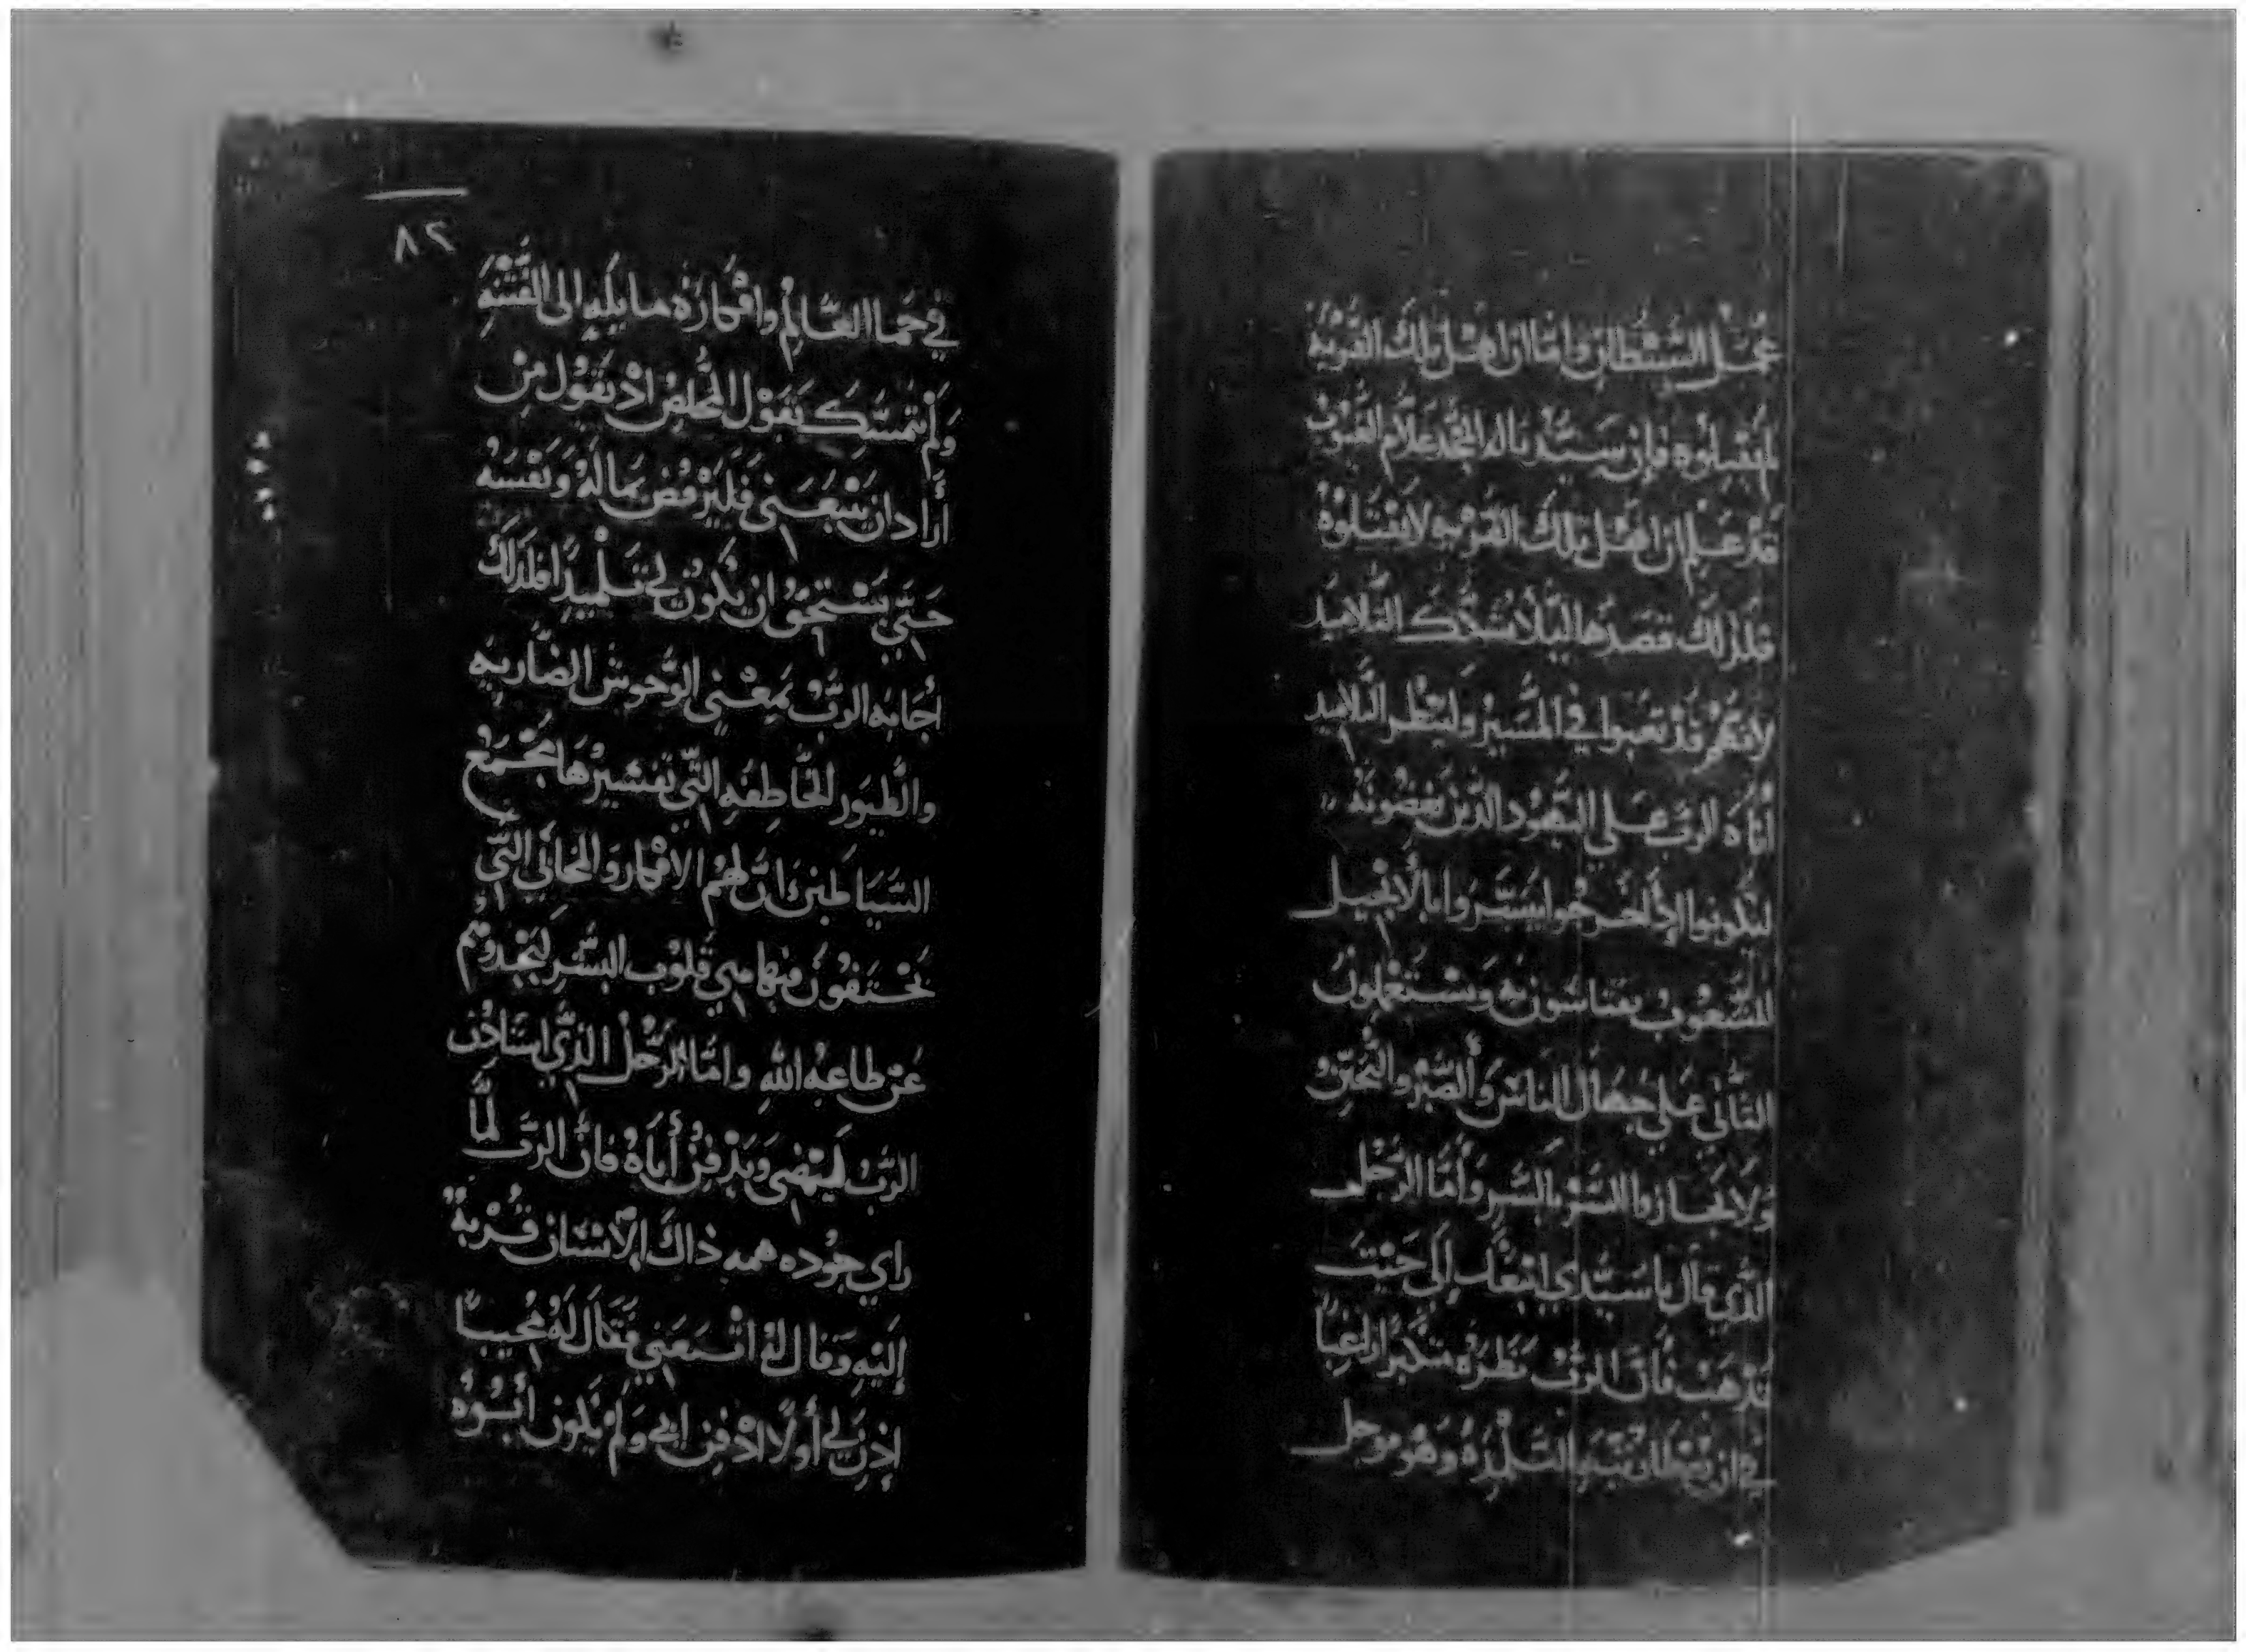 عمل الشيطان واما ان اهل تلك القريه
لم يقبلوه فان سيدنا له المجد علام الغيوب
قد علم ان اهل تلك القريه لا يقبلوه
فلذلك قصدها ليلا التلاميذ
لانهم قد تعبوا في المسير ولينظر التلاميذ
أناه الرب على اليهود الذين يبغضونه
ليكونوا إذا خرجوا يبشروا بالأنجيل
للشعوب به ويستعملون
التأني على جهال الناس والصبر والتحنن
ولا يجازوا الشر بالشر وأما الرجل
الذي قال يا سيدي اتبعك إلى حيث
تذهب فان الرب نظره متكبرا راغبا
في ان يعطا التلمذه وهو
في حما العالم وافكاره مايله الى القنيه
ولم يتمسك بقول المخلص اذ يقول من
أراد ان يتبعني فليرفض ماله ونفسه
حتي يستحق ان يكون لي تلميذا فلذلك
اجابه الرب بمعني الوحوش الضاريه
والطيور الخاطفه التي تفسيرها مجمع
الشياطين ان لهم الافكار والمخابي التي
يختفون فيها في قلوب البشر ليجدوهم
عن طاعه الله واما الرجل الذي استاذن
الرب ليمضي ويدفن أباه فان الرب لما
راي جوده همه ذاك الانسان قربه
إليه وقال له اتبعني فقال له مجيبا
إذن لي أولا ادفن ابي ولم يكون أبوه
٨٢